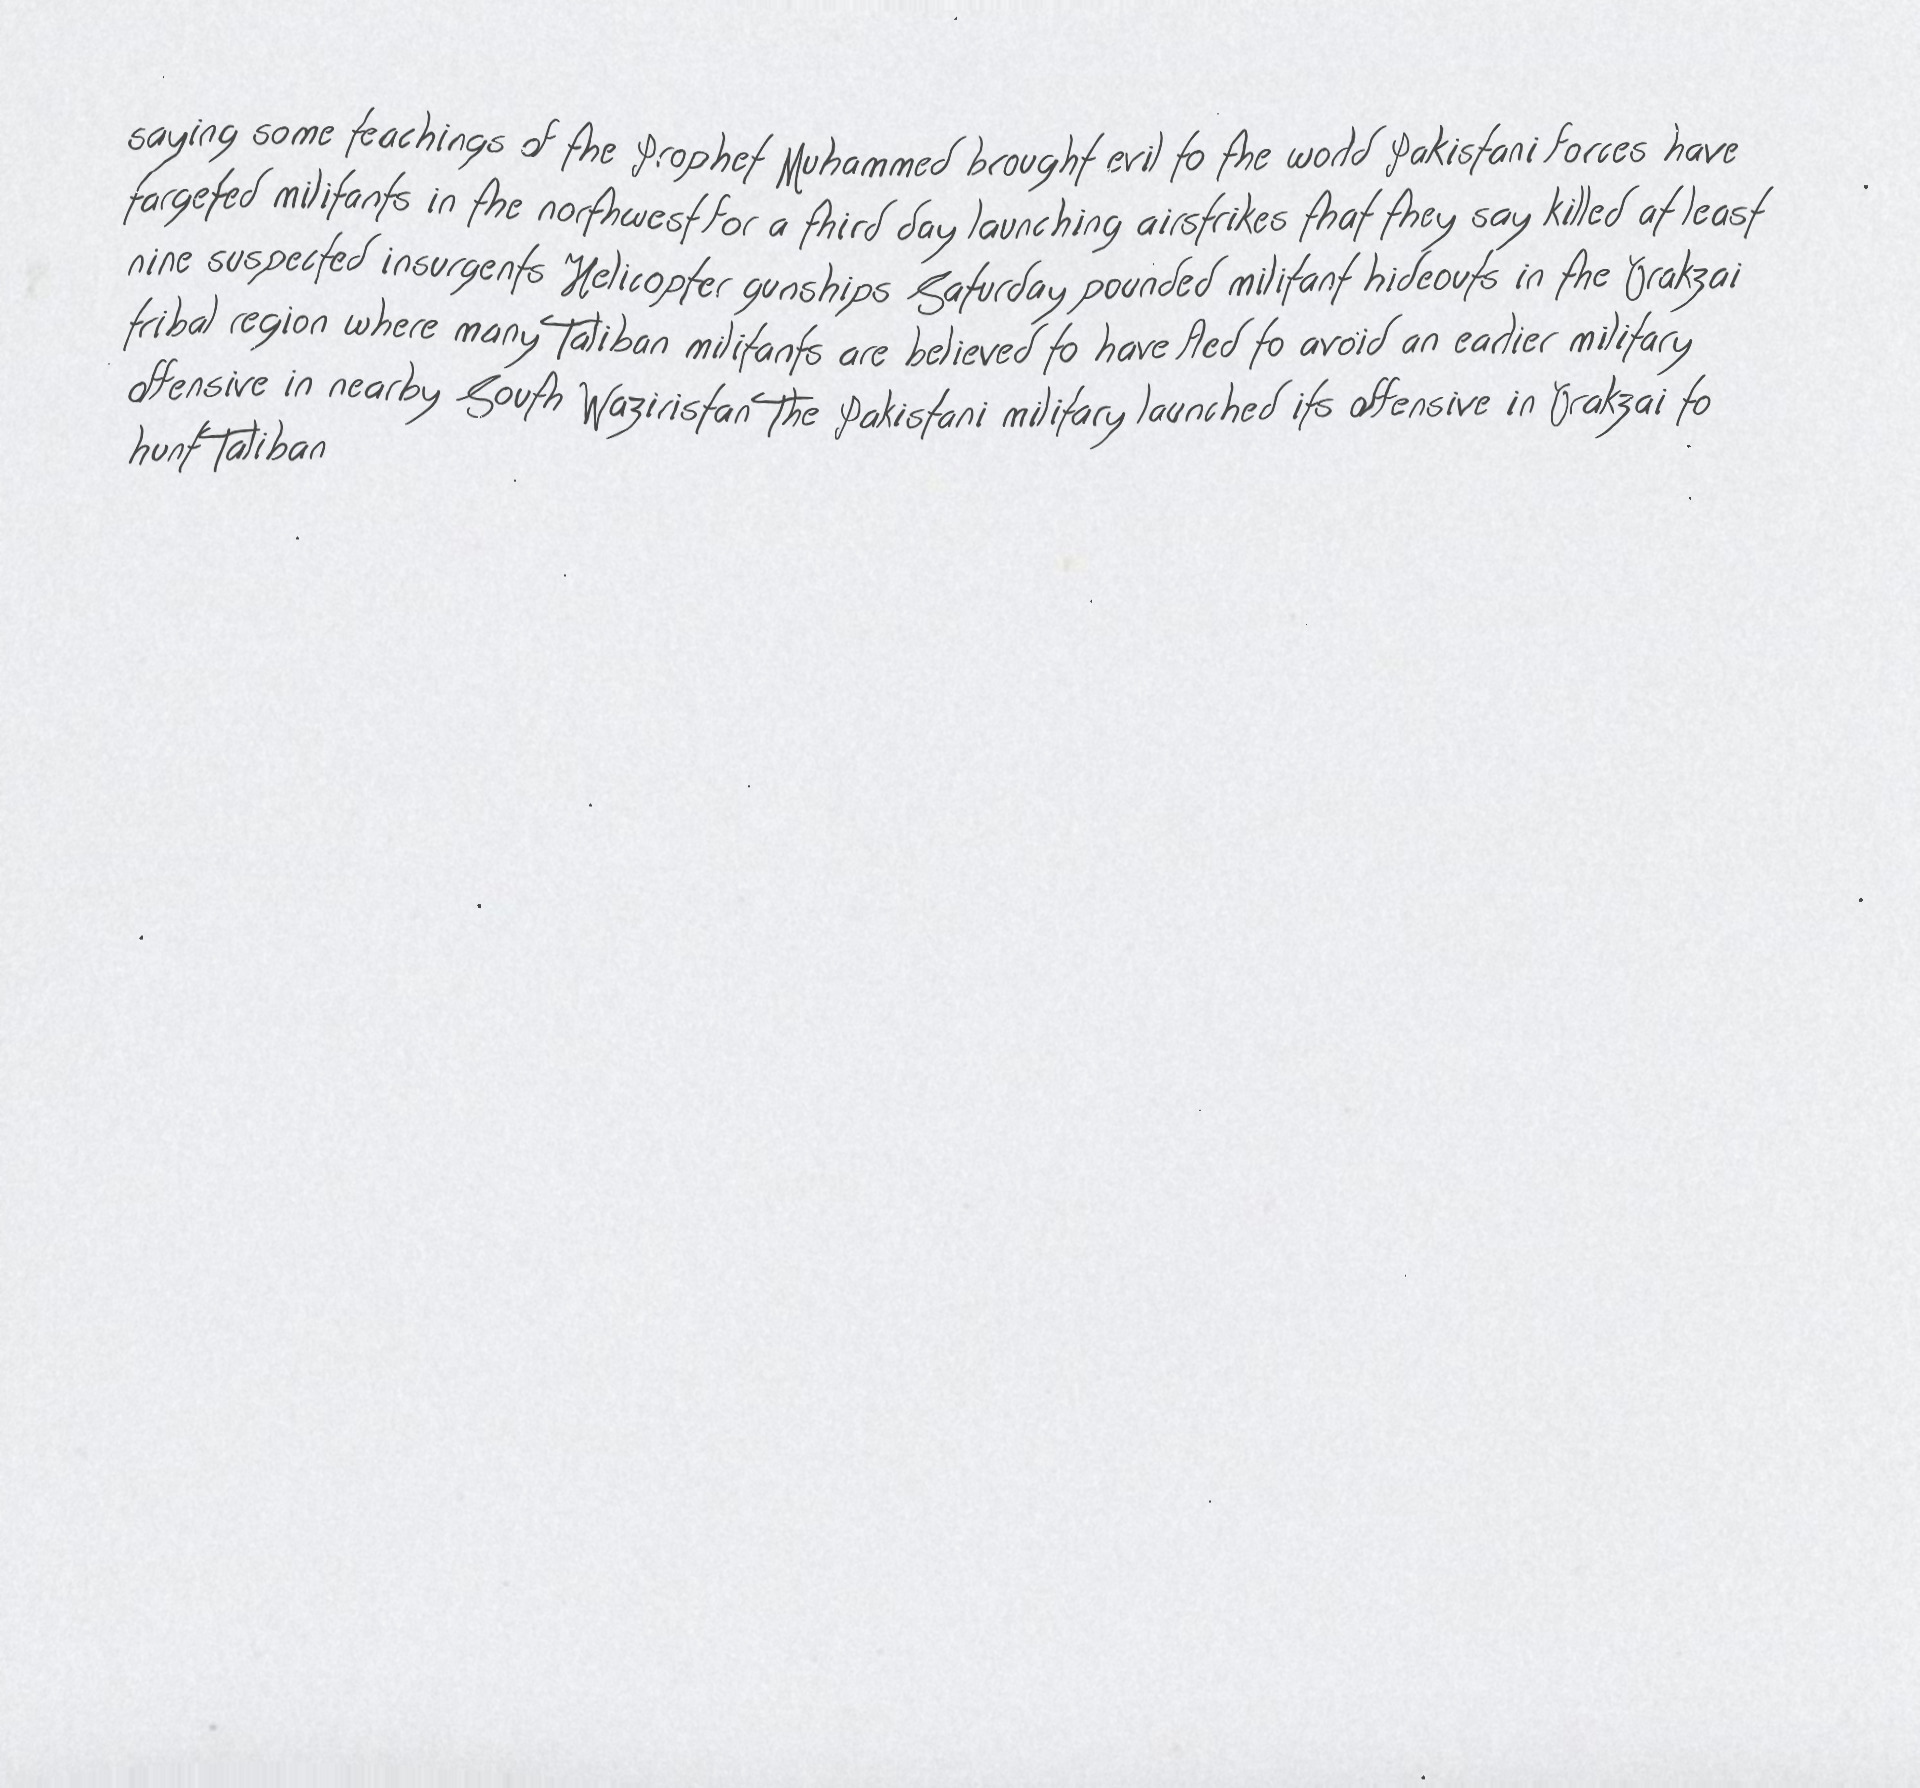 saying some teachings of the Prophet Muhammed brought evil to the world Pakistani forces have
targeted militants in the northwest for a third day launching airstrikes that they say killed at least
nine suspected insurgents Helicopter gunships Saturday pounded militant hideouts in the Orakzai
tribal region where many Taliban militants are believed to have fled to avoid an earlier military
offensive in nearby South Waziristan The Pakistani military launched its offensive in Orakzai to
hunt Taliban